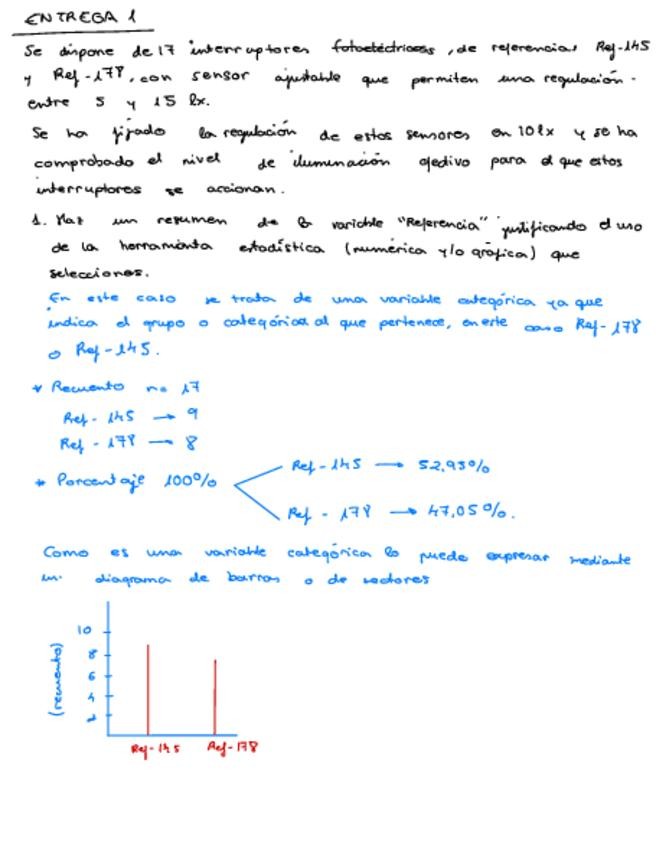 ENTREGA 1
Se dispone de 17 interruptores fotoeléctricos, de referencias Ref-145
y Ref-178, con sensor ajustable que permiten una regulación
entre 5 y 15 lx.
Se ha fijado la regulación de estos sensores en 10 lx y se ha
comprobado el nivel de iluminación efectivo para el que estos
interruptores se accionan.
1. Haz un resumen de la variable "Referencia" justificando el uso
de la herramienta estadística (numérica y/o gráfica) que
selecciones.
En este caso se trata de una variable categórica ya que
indica el grupo o categórica al que pertenece, en este caso Ref-178
o Ref-145.
* Recuento n= 17
Ref-145 → 9
Ref-178 → 8
* Porcentaje 100%
Ref-145 → 52,93%
Ref-178 → 47,05%.
Como es una variable categórica lo puede expresar mediante
un diagrama de barras o de sectores
(recuento)
10
8
6
4
2
Ref-145 Ref-178